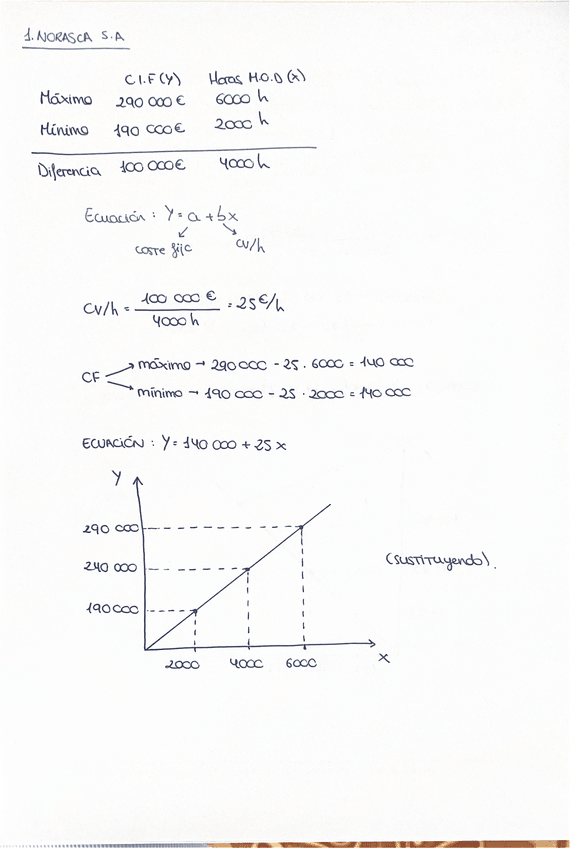 1. NORASCA S.A
C.I.F (Y) Horas M.O.D (X)
Máximo 290 000 € 6000 h
Mínimo 190 000 € 2000 h
Diferencia 100 000 € 4000 h
Ecuación : Y = a + bx
coste fijo cv/h
CV/h = 100 000 € / 4000 h = 25 €/h
CF
máximo → 290 000 - 25 . 6000 = 140 000
mínimo → 190 000 - 25 · 2000 = 140 000
ECUACIÓN : Y = 140 000 + 25 x
Y
290 000
240 000 (sustituyendo).
190 000
2000 4000 6000 X